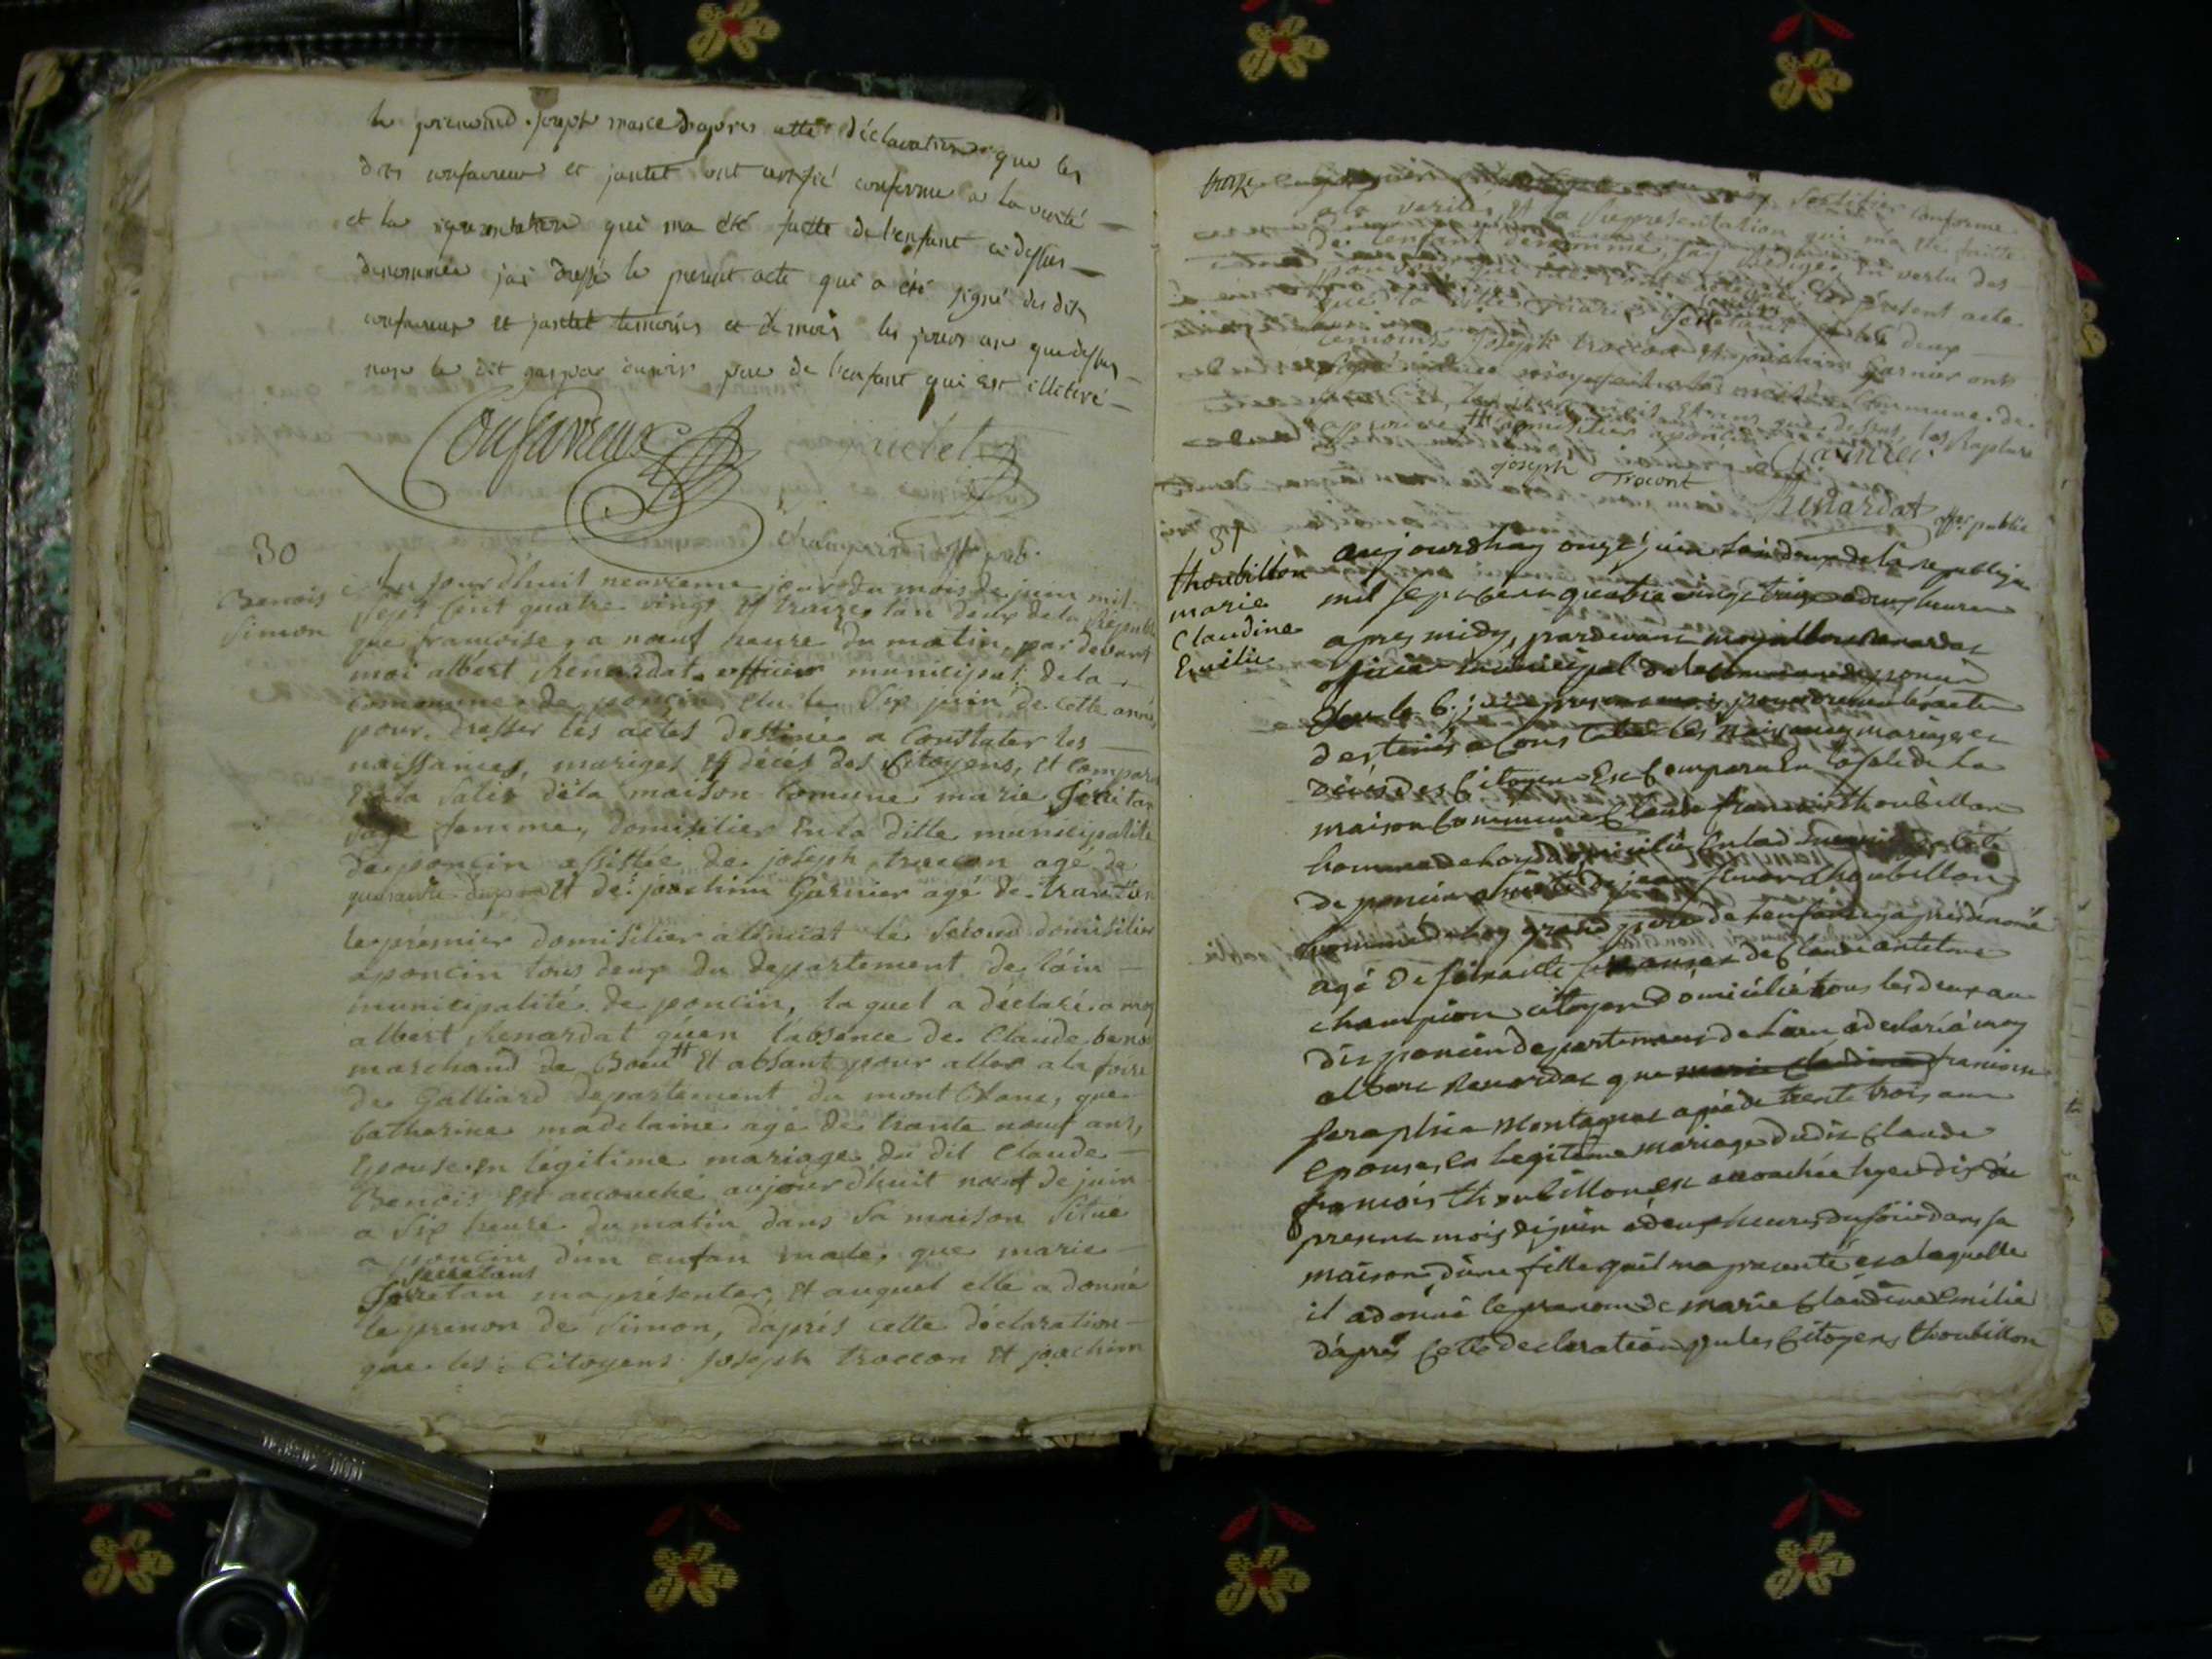 le prenom d joseph marie d'apres cette déclaration que les
dits confavreux et jantet ont certifié conforme a la verité
et la représentation qui ma été faitte de l'enfant ci dessus
denommée jai dressé le present acte qui a été signé des dits
confavreux et jantet temoins et de moi les jours an que dessus
non le dit gaspar pere de l'enfant qui est illitéré
Confavreux
jantet
off. pub.
30
Benois
Simon
Aujourd'huit neuvieme jour du mois de juin mil
sept cent quatre vingt et traize lan deux de la Republi
que françoise, a nœuf heure du matin, par devant
moi albert Renardat officier municipal de la
commune de poncin élu le six juin de cette année
pour dresser les actes destiné a Constater les
naissances, mariges et décés des Citoyens, Et Compara
En la Salis déla maison Comune marie Serétan
sage femme, domisilier En la ditte municipalité
de poncin assistée de joseph troccon agé de
quarante deux Et de joachim Garnier agé de trante
le premier domisilier a le second domisilier
a poncin tous deux du departement de l'ain
municipalité de poncin, la quel a déclaré a moy
albert Renardat qu'en l'absence de Claude benoi
marchand de Boeuf Et absant pour aller a la foire
de Galliard departement du mont blanc, que
Catherine madelaine agé de trante nœuf ans,
Epouse En légitime mariage du dit Claude
Benois Est accouché aujourd'huit nœuf de juin
a six heure du matin dans sa maison situé
a poncin d'un enfan male, que marie
Serretans
Serétan ma présenter, Et auquel elle a donné
le prenon de Simon, daprés cette déclaration
que les Citoyens joseph troccon Et joachim
Sertifier Conforme
a la verité, Et la Representation qui ma été faitte
de lenfant dénommé, jay Rédigé, En vertu des
pouvoirs qui me sont le présent acte
que la ditte marie Serretant les deux
temoins joseph troccon Et joachim Garnier ont
signé avec moy Commune de
poncin, les jours mois Et ans que dessus, les Rapture
approuvé domisilier a poncin
joseph Trocont
Garnier
Renardat offer public
31
thoubillon
marie
Claudine
Emilie
aujourdhuy onze juin lan deux de la republique
mil sept cent quatre vingt treize a deux heures
apres midy, pardevant moy albert Renardat
officier municipal de la commune de poncin
élu le 6. juin present mois pour dresser les actes
destinés a Constater les naissances mariages et
décés des Citoyens Est Comparu En la sale de la
maison Commune Claude françois thoubillon
homme de loy domicilié En lad. municipalité
de poncin assisté de jean thoubillon
homme de loy grand pere de lenfant cy apres dénomé
agé de soixante et de Claude antelme
champion citoyen domicilié tous les deux au
dit poncin departement de lain a declaré à moy
albert Renardat que marie Claudine francoise
seraphie Montagnat agée de trente trois ans
Epouse En legitime mariage du dit Claude
françois thoubillon est accouchée hyer dix du
present mois de juin a deux heures du soir dans sa
maison d'une fille quil ma presenté et a laquelle
il a donné le prenom de marie Claudine Emilie
d'aprés Cette declaration que les Citoyens thoubillon